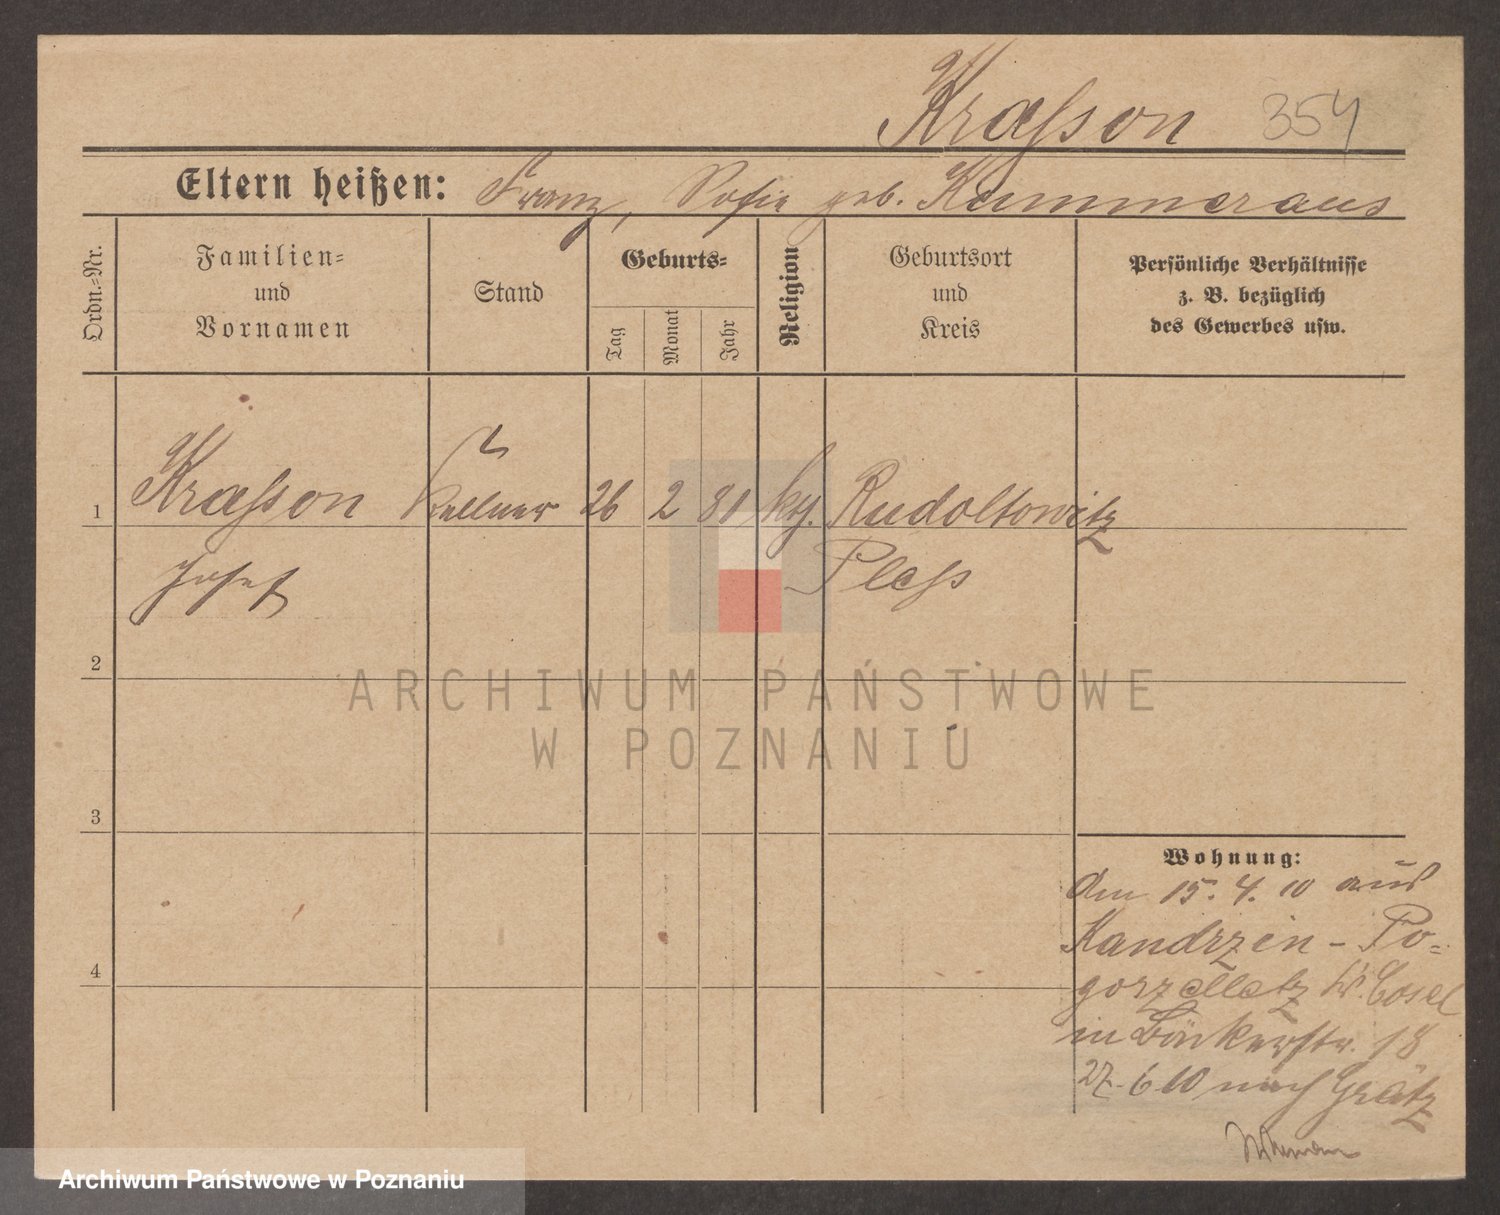 Kraſson 354
Eltern heißen: Franz, Sofie geb. Kummeraus
Ordn.-Nr.
Familien-
und
Vornamen
Stand
Geburts-
Tag
Monat
Jahr
Religion
Geburtsort
und
Kreis
Persönliche Verhältnisse
z. B. bezüglich
des Gewerbes usw.
1 Kraſson Kellner 26 2 81 kth. Rudoltowitz
Josef Pleſs
2
ARCHIWUM PAŃSTWOWE
W POZNANIU
3
Wohnung:
am 15. 4. 10 aus
Kandrzin - Po-
gorzelletz Kr. Cosel
in Bäckerstr. 18
27. 6 10 nach Grätz
4
Archiwum Państwowe w Poznaniu